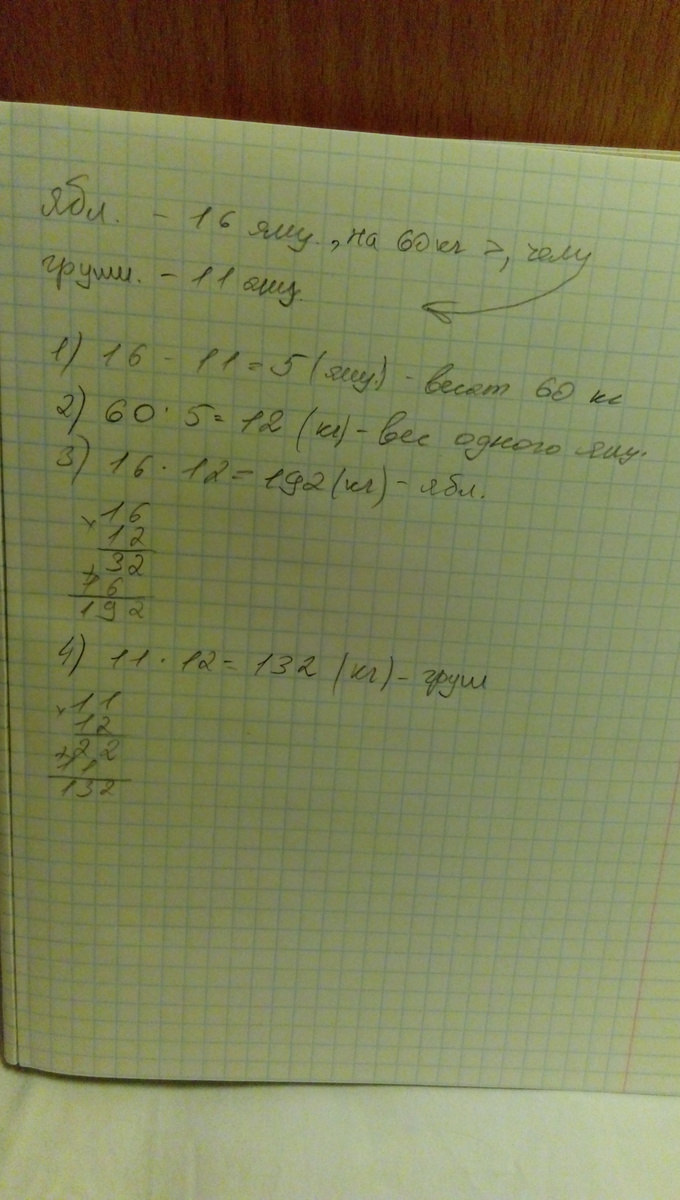 ябл. - 16 ящ., на 60 кг >, чему
груши. - 11 ящ.
1) 16 - 11 = 5 (ящ.) - весят 60 кг
2) 60 : 5 = 12 (кг) - вес одного ящ.
3) 16 · 12 = 192 (кг) - ябл.
× 16
12
+ 32
16
192
4) 11 · 12 = 132 (кг) - груш
× 11
12
+ 22
11
132